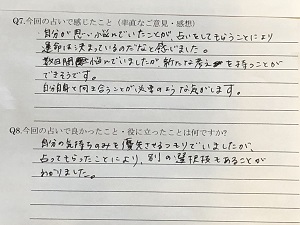 Q7.今回の占いで感じたこと（率直なご意見・感想）
・自分が思い悩んでいたことが、占いをしてもらうことにより
運命は決まっているのだなと感じました。
数日間悩んでいましたが新たな考えを持つことが
できそうです。
自分自身と向き合うことが必要のような気がします。
Q8.今回の占いで良かったこと・役に立ったことは何ですか?
自分の気持ちのみを優先させるつもりでいましたが、
占ってもらったことにより、別の選択枝もあることが
わかりました。